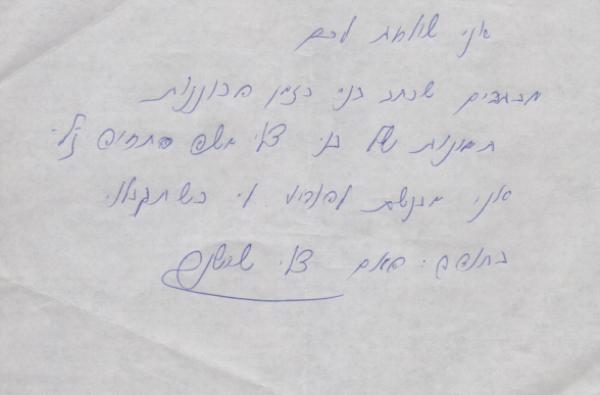 אני שולחת לכם
מכתבים שכתב בני בזמן הכוננות
תמונות של בני צבי משה התחיים ז"ל
אני מבקשת להודיע לי כשתקבלו
בתודה האם צבי